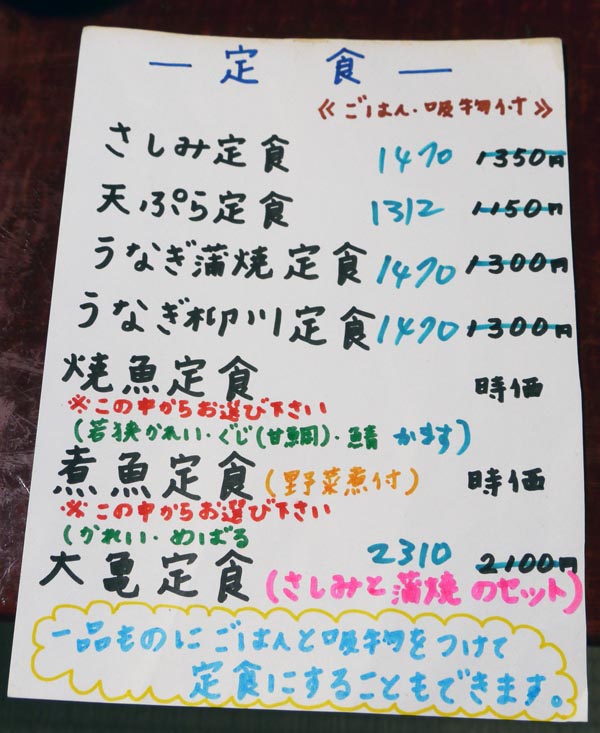 ― 定 食 ―
《ごはん・吸物付》
さしみ定食 1470 1350円
天ぷら定食 1312 1150円
うなぎ蒲焼定食 1470 1300円
うなぎ柳川定食 1470 1300円
焼魚定食 時価
※この中からお選び下さい
(若狭かれい・ぐじ(甘鯛)・鯖 かます)
煮魚定食(野菜煮付) 時価
※この中からお選び下さい
(かれい・めばる
大亀定食 2310 2100円
(さしみと蒲焼のセット)
一品ものにごはんと吸物をつけて
定食にすることもできます。